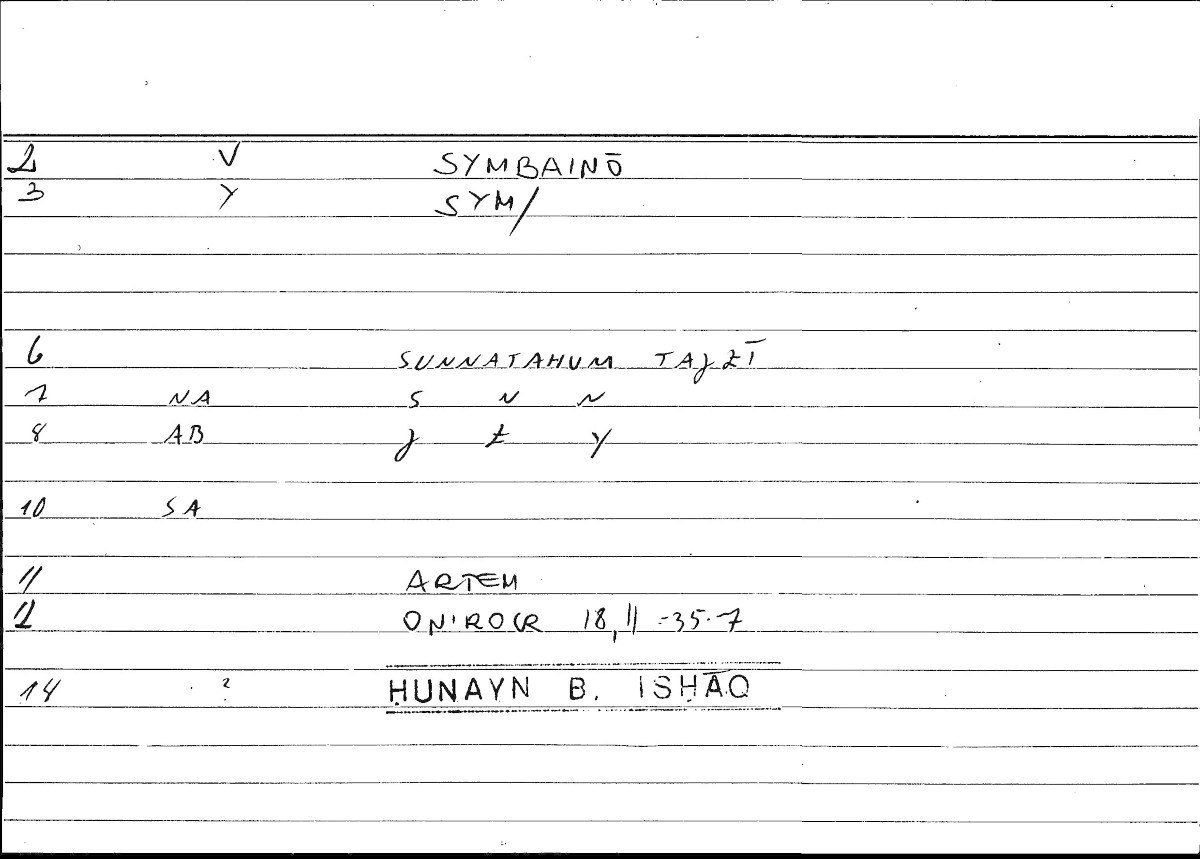 2 V SYMBAINŌ
3 Y SYM/
6 SUNNATAHUM TAJŁĪ
7 NA S N N
8 AB J Ł Y
10 SA
11 ARTEM
12 ONIROCR 18,11-35.7
14 ? ḤUNAYN B. ISḤĀQ